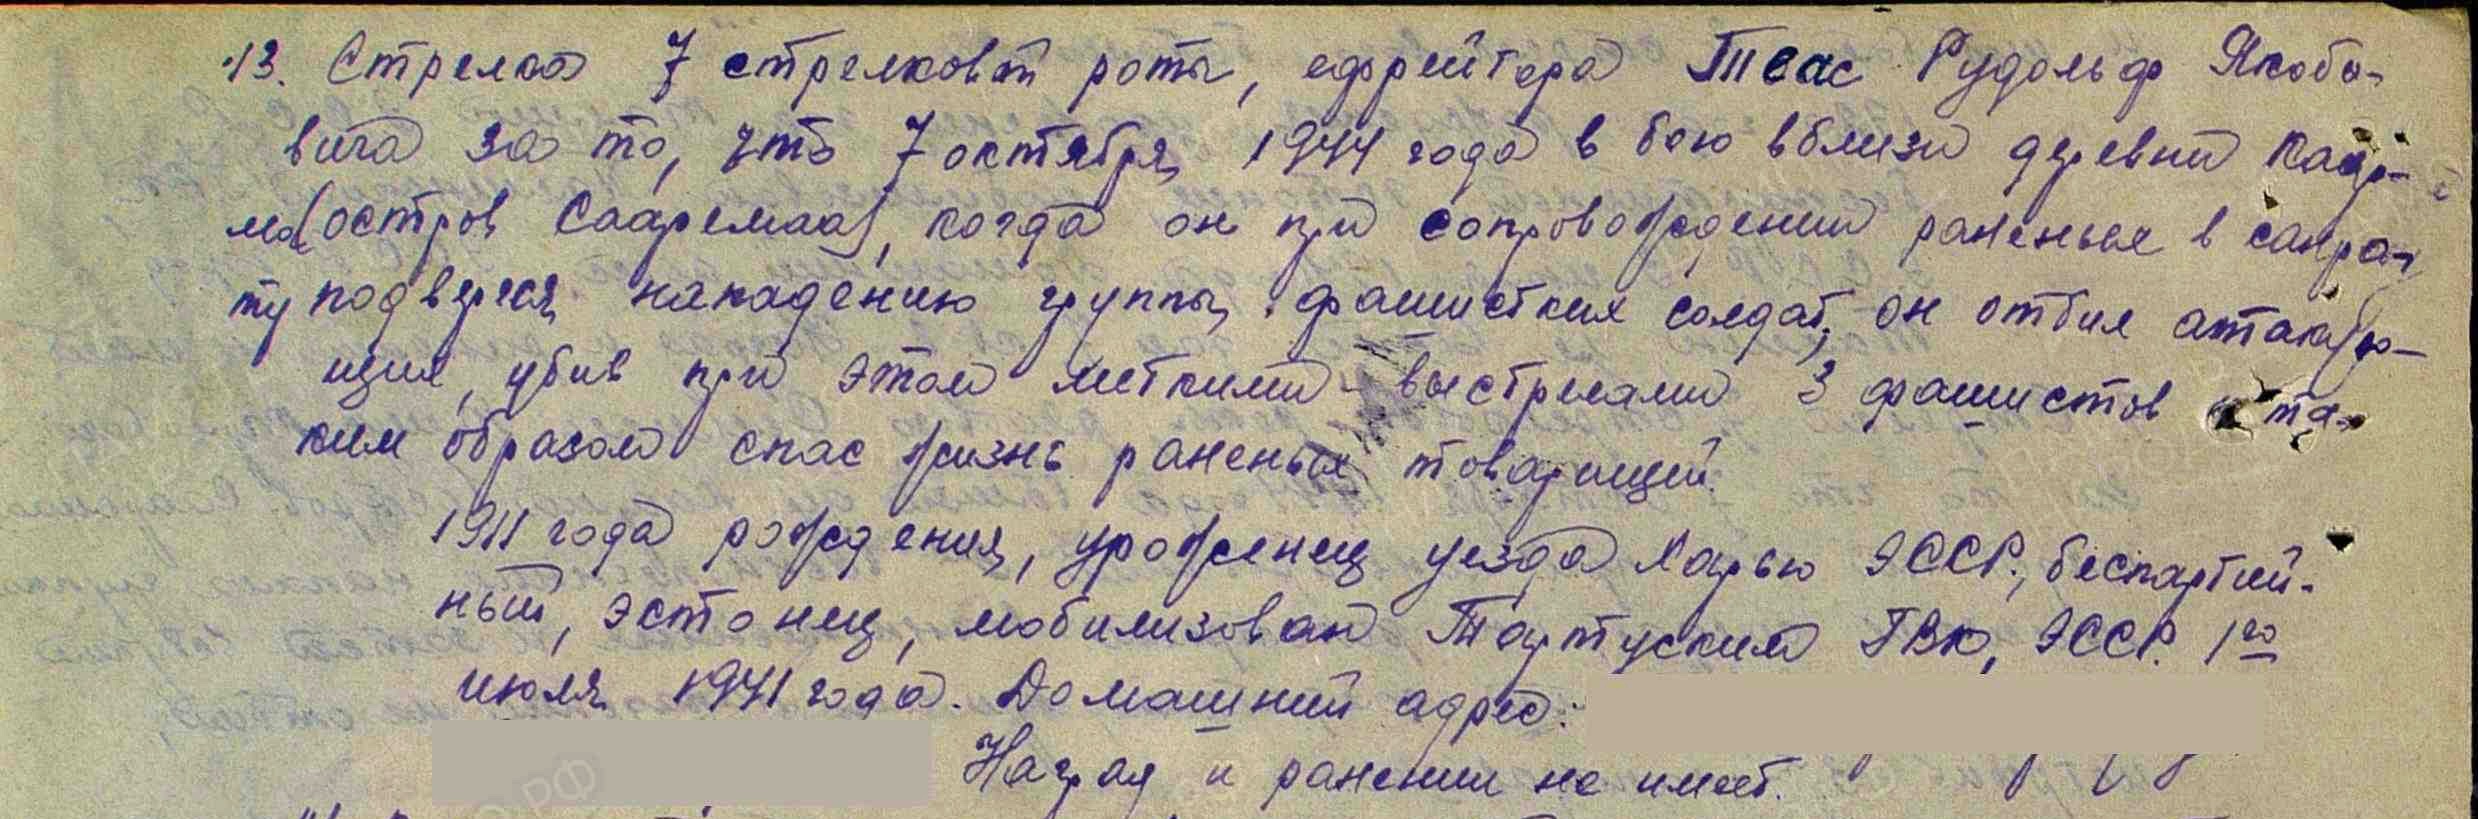 13. Стрелка 7 стрелковой роты, ефрейтора Теас Рудольф Якобо-
вича за то, что 7 октября 1944 года в бою вблизи деревни Каар-
ма (остров Сааремаа), когда он при сопровождении раненых в санро-
ту подвергся нападению группы фашистких солдат, он отбил атакую-
щих, убив при этом меткими выстрелами 3 фашистов и та-
ким образом спас жизнь раненых товарищей.
1911 года рождения, уроженец уезда Харью ЭССР, беспартий-
ный, эстонец, мобилизован Тартуским ГВК, ЭССР. 1го
июля 1941 года. Домашний адрес:
Наград и ранений не имеет.